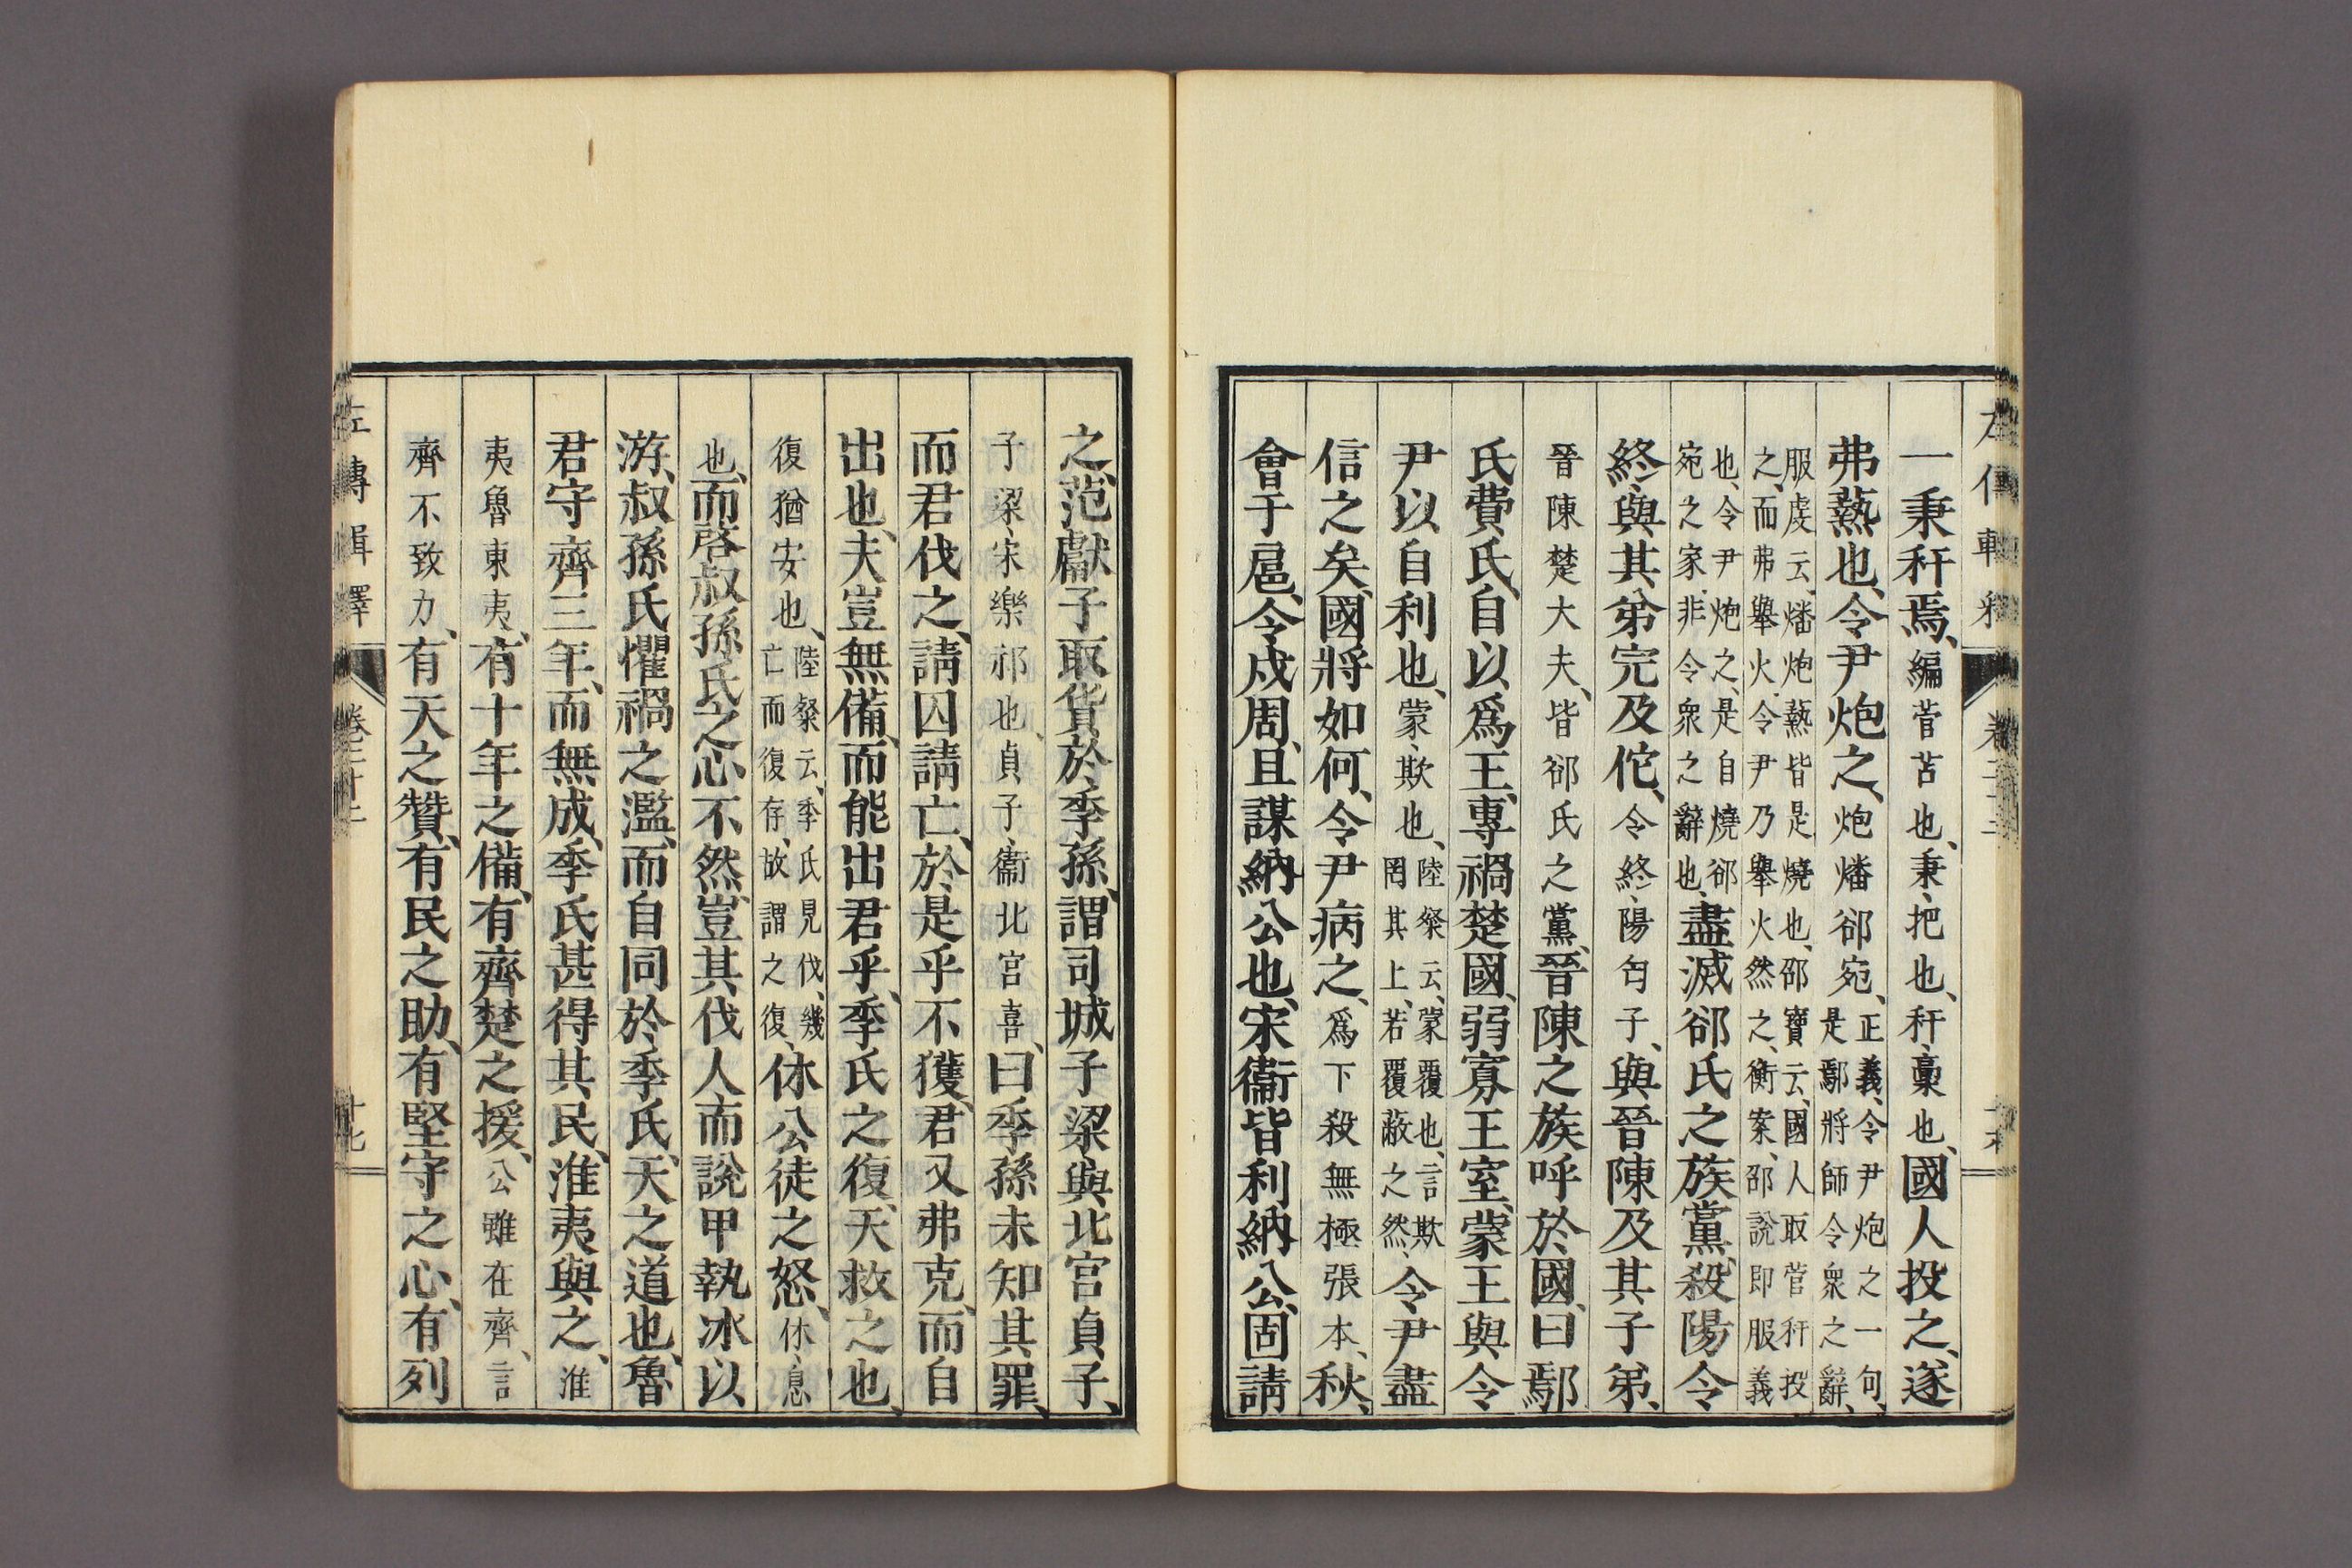 一秉秆焉、編菅苫也、秉、把也、秆、稾也、國人投之、遂
弗爇也、令尹炮之、炮燔郤宛、正義、令尹炮之一句、是鄢將師令衆之辭、
服虔云、燔炮爇皆是燒也、邵寶云、國人取菅秆投之、而弗舉火、令尹乃舉火然之、衡案、邵說即服義
也、令尹炮之、是自燒郤宛之家、非令衆之辭也、盡滅郤氏之族黨、殺陽令
終、與其弟完及佗、令終、陽匄子、與晉陳及其子弟、
晉陳楚大夫、皆郤氏之黨、晉陳之族呼於國、曰、鄢
氏費氏、自以爲王、專禍楚國、弱寡王室、蒙王與令
尹以自利也、蒙、欺也、陸粲云、蒙覆也、言欺罔其上、若覆蔽之然、令尹盡
信之矣、國將如何、令尹病之、爲下殺無極張本、秋、
會于扈、令戍周、且謀納公也、宋衞皆利納公、固請
之、范獻子取貨於季孫、謂司城子梁與北宮貞子、
子梁、宋樂祁也、貞子、衞北宮喜、曰、季孫未知其罪、
而君伐之、請囚請亡、於是乎不獲、君又弗克、而自
出也、夫豈無備、而能出君乎、季氏之復、天救之也、
復猶安也、陸粲云、季氏見伐、幾亡而復存、故謂之復、休公徒之怒、休、息
也、而啓叔孫氏之心、不然、豈其伐人而說甲執冰以
游、叔孫氏懼禍之濫、而自同於季氏、天之道也、魯
君守齊三年、而無成、季氏甚得其民、淮夷與之、淮
夷魯東夷、有十年之備、有齊楚之援、公雖在齊、言
齊不致力、有天之贊、有民之助、有堅守之心、有列
左傳輯釋 卷二十二 十七